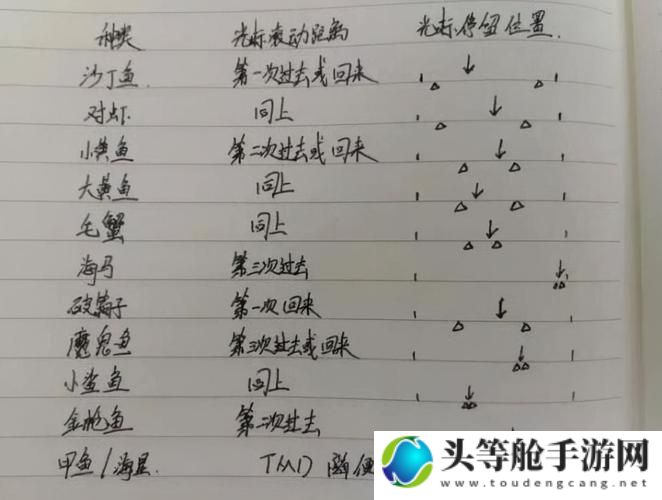 种类 光标滚动距离 光标停留位置
沙丁鱼 第一次过去或回来
对虾 同上
小黄鱼 第二次过去或回来
大黄鱼 同上
毛蟹 同上
海马 第三次过去
破篓子 第一次回来
魔鬼鱼 第三次过去或回来
小鲨鱼 同上
金枪鱼 第二次过去
甲鱼/海星 TMD 随便
头等舱手游网
www.toudengcang.net